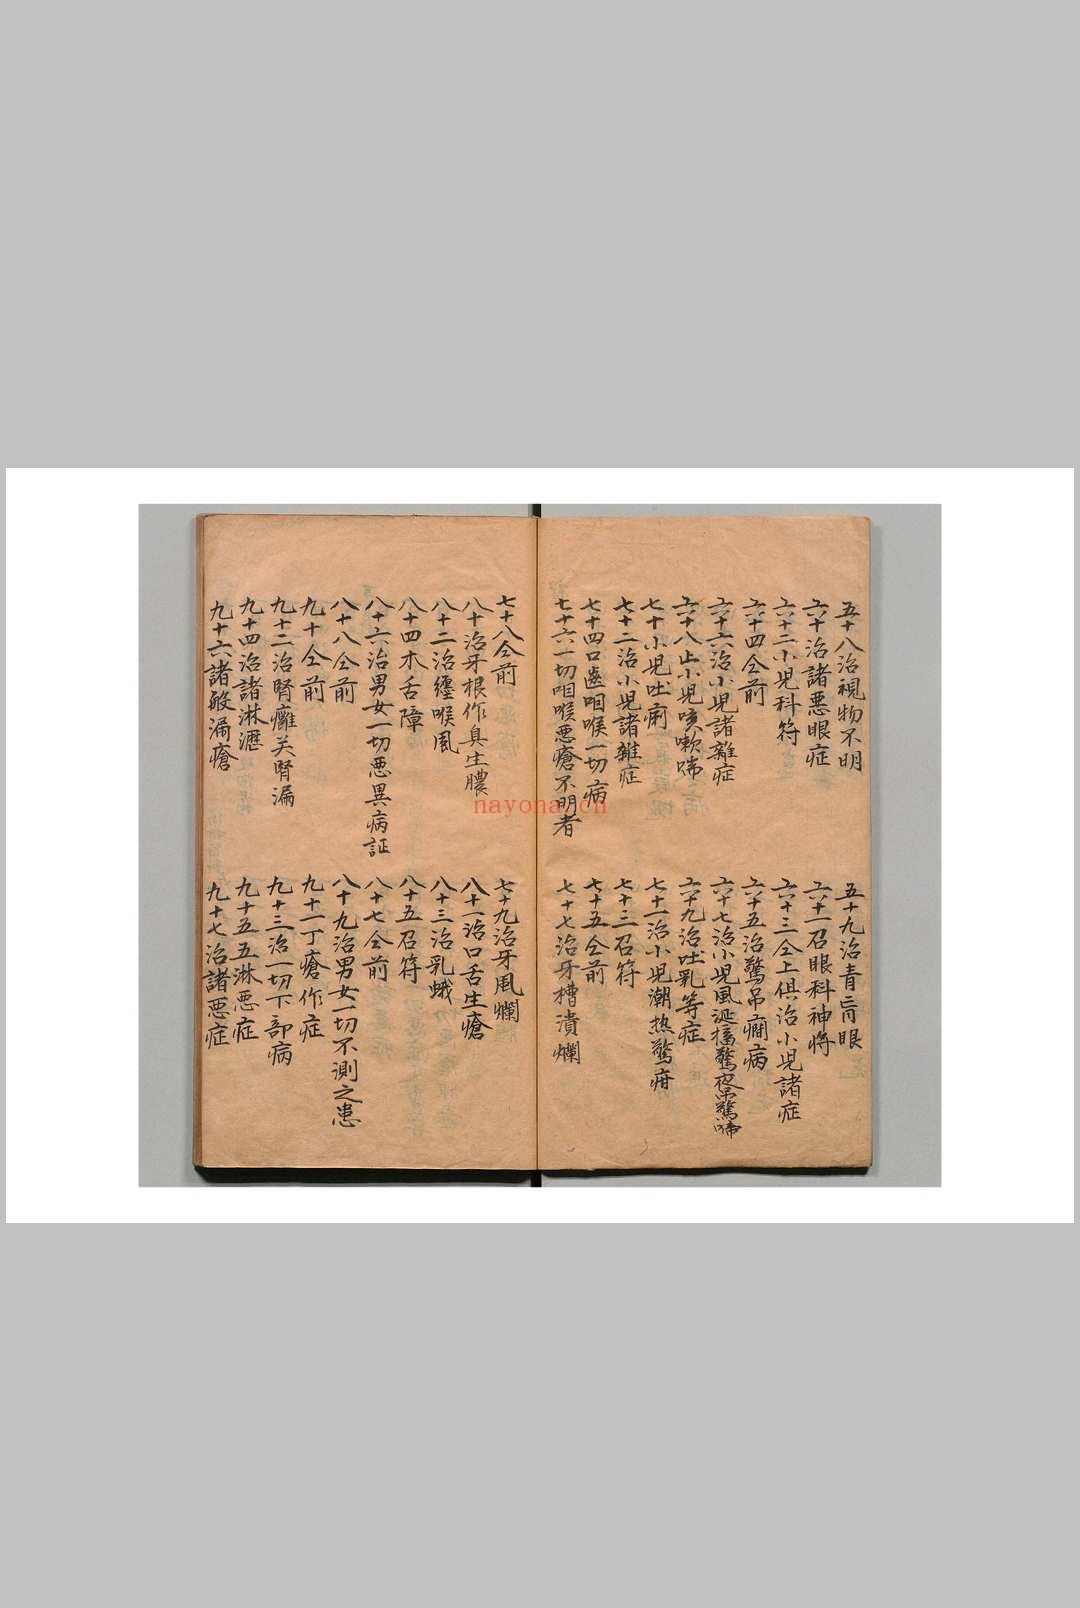 五十八治視物不明
五十九治青盲眼
六十治諸惡眼症
六十一召眼科神将
六十二小児科符
六十三仝上俱治小児諸症
六十四仝前
六十五治驚吊癎病
六十六治小児諸雜症
六十七治小児風涎搐驚夜吊驚啼
六十八止小児咳嗽喘
六十九治吐乳等症
七十小児吐痢
七十一治小児潮热驚疳
七十二治小児諸雜症
七十三召符
七十四口齒咽喉一切病
七十五仝前
七十六一切咽喉惡瘡不明者
七十七治牙槽潰爛
七十八仝前
七十九治牙風爛
八十治牙根作臭生膿
八十一治口舌生瘡
八十二治纏喉風
八十三治乳蛾
八十四木舌障
八十五召符
八十六治男女一切惡異病証
八十七仝前
八十八仝前
八十九治男女一切不測之患
九十仝前
九十一丁瘡作症
九十二治腎癰关腎漏
九十三治一切下部病
九十四治諸淋瀝
九十五五淋惡症
九十六諸般漏瘡
九十七治諸惡症
nayona.cn